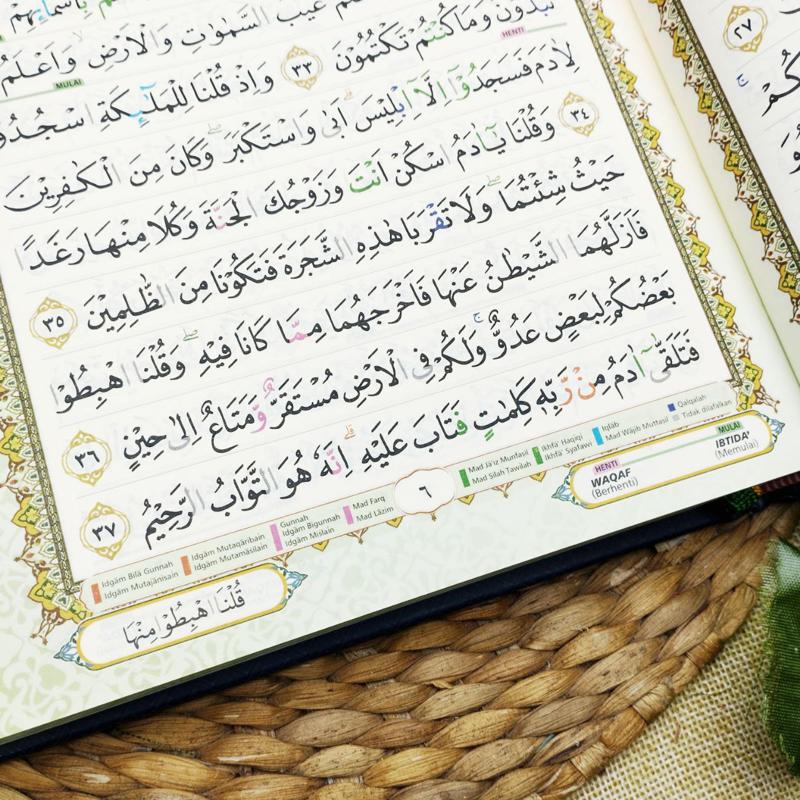 بِاَسْمَاۤىِٕهِمْ
غَيْبَ السَّمٰوٰتِ وَالْاَرْضِ وَاَعْلَمُ
تُبْدُوْنَ وَمَا كُنْتُمْ تَكْتُمُوْنَ ٣٣ وَاِذْ قُلْنَا لِلْمَلٰۤىِٕكَةِ اسْجُدُوْا
HENTI
MULAI
لِاٰدَمَ فَسَجَدُوْٓا اِلَّآ اِبْلِيْسَۗ اَبٰى وَاسْتَكْبَرَۖ وَكَانَ مِنَ الْكٰفِرِيْنَ
٣٤ وَقُلْنَا يٰٓاٰدَمُ اسْكُنْ اَنْتَ وَزَوْجُكَ الْجَنَّةَ وَكُلَا مِنْهَا رَغَدًا
حَيْثُ شِئْتُمَاۖ وَلَا تَقْرَبَا هٰذِهِ الشَّجَرَةَ فَتَكُوْنَا مِنَ الظّٰلِمِيْنَ ٣٥
فَاَزَلَّهُمَا الشَّيْطٰنُ عَنْهَا فَاَخْرَجَهُمَا مِمَّا كَانَا فِيْهِۖ وَقُلْنَا اهْبِطُوْا
بَعْضُكُمْ لِبَعْضٍ عَدُوٌّۚ وَلَكُمْ فِى الْاَرْضِ مُسْتَقَرٌّ وَّمَتَاعٌ اِلٰى حِيْنٍ ٣٦
فَتَلَقّٰٓى اٰدَمُ مِنْ رَّبِّهٖ كَلِمٰتٍ فَتَابَ عَلَيْهِۗ اِنَّهٗ هُوَ التَّوَّابُ الرَّحِيْمُ ٣٧
Idgām Bilā Gunnah
Idgām Mutajānisain
Idgām Mutaqāribain
Idgām Mutamāṡilain
Gunnah
Idgām Bigunnah
Idgām Mislain
Mad Farq
Mad Lāzim
٦
Mad Jā'iz Munfasil
Mad Silah Ṭawīlah
Ikhfā' Haqiqi
Ikhfā' Syafawi
Iqlāb
Mad Wājib Muttasil
Qalqalah
Tidak dilafalkan
HENTI
WAQAF
(Berhenti)
MULAI
IBTIDA'
(Memulai)
قُلْنَا اهْبِطُوْا مِنْهَا
٢٧